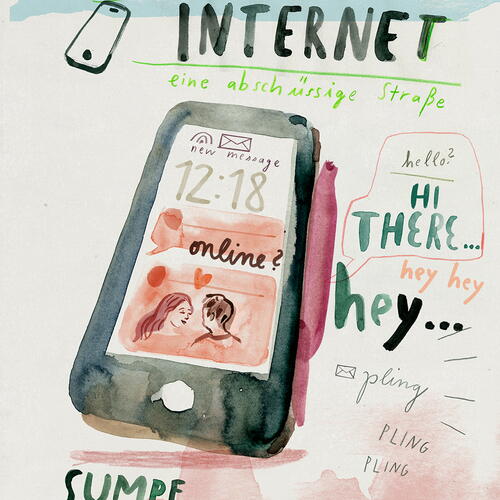 INTERNET
eine abschüssige Straße
new message
12:18
online?
hello?
HI
THERE...
hey hey
hey...
pling
PLING
PLING
SUMPF